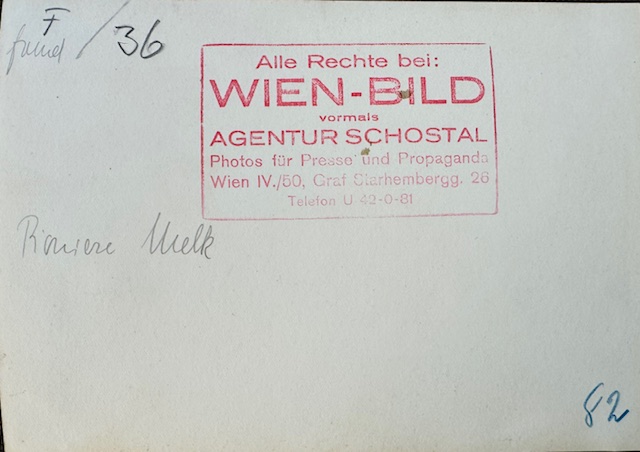 F
/ 36
Alle Rechte bei:
WIEN-BILD
vormals
AGENTUR SCHOSTAL
Photos für Presse und Propaganda
Wien IV./50, Graf Starhembergg. 26
Telefon U 42-0-81
Pioniere Melk
82